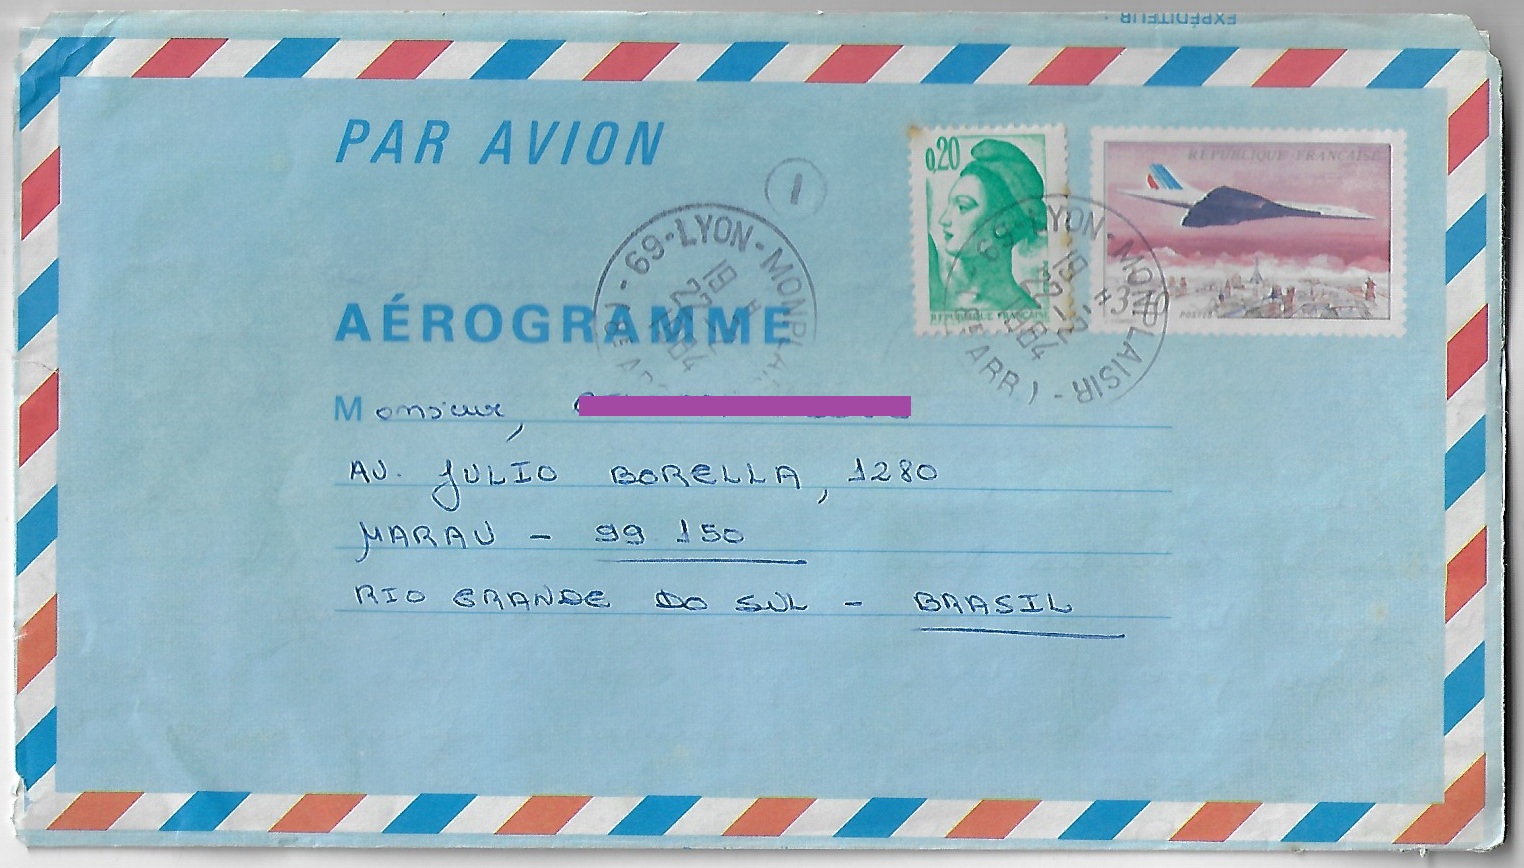 EXPÉDITEUR :
PAR AVION
1
0,20
RÉPUBLIQUE FRANÇAISE
REPUBLIQUE FRANÇAISE
POSTES
69-LYON-MONPLAISIR
19 H
1984
69-LYON-MONPLAISIR - (8E ARR.)
19 H
1984
AÉROGRAMME
Monsieur,
AV. JULIO BORELLA, 1280
MARAU - 99 150
RIO GRANDE DO SUL - BRASIL